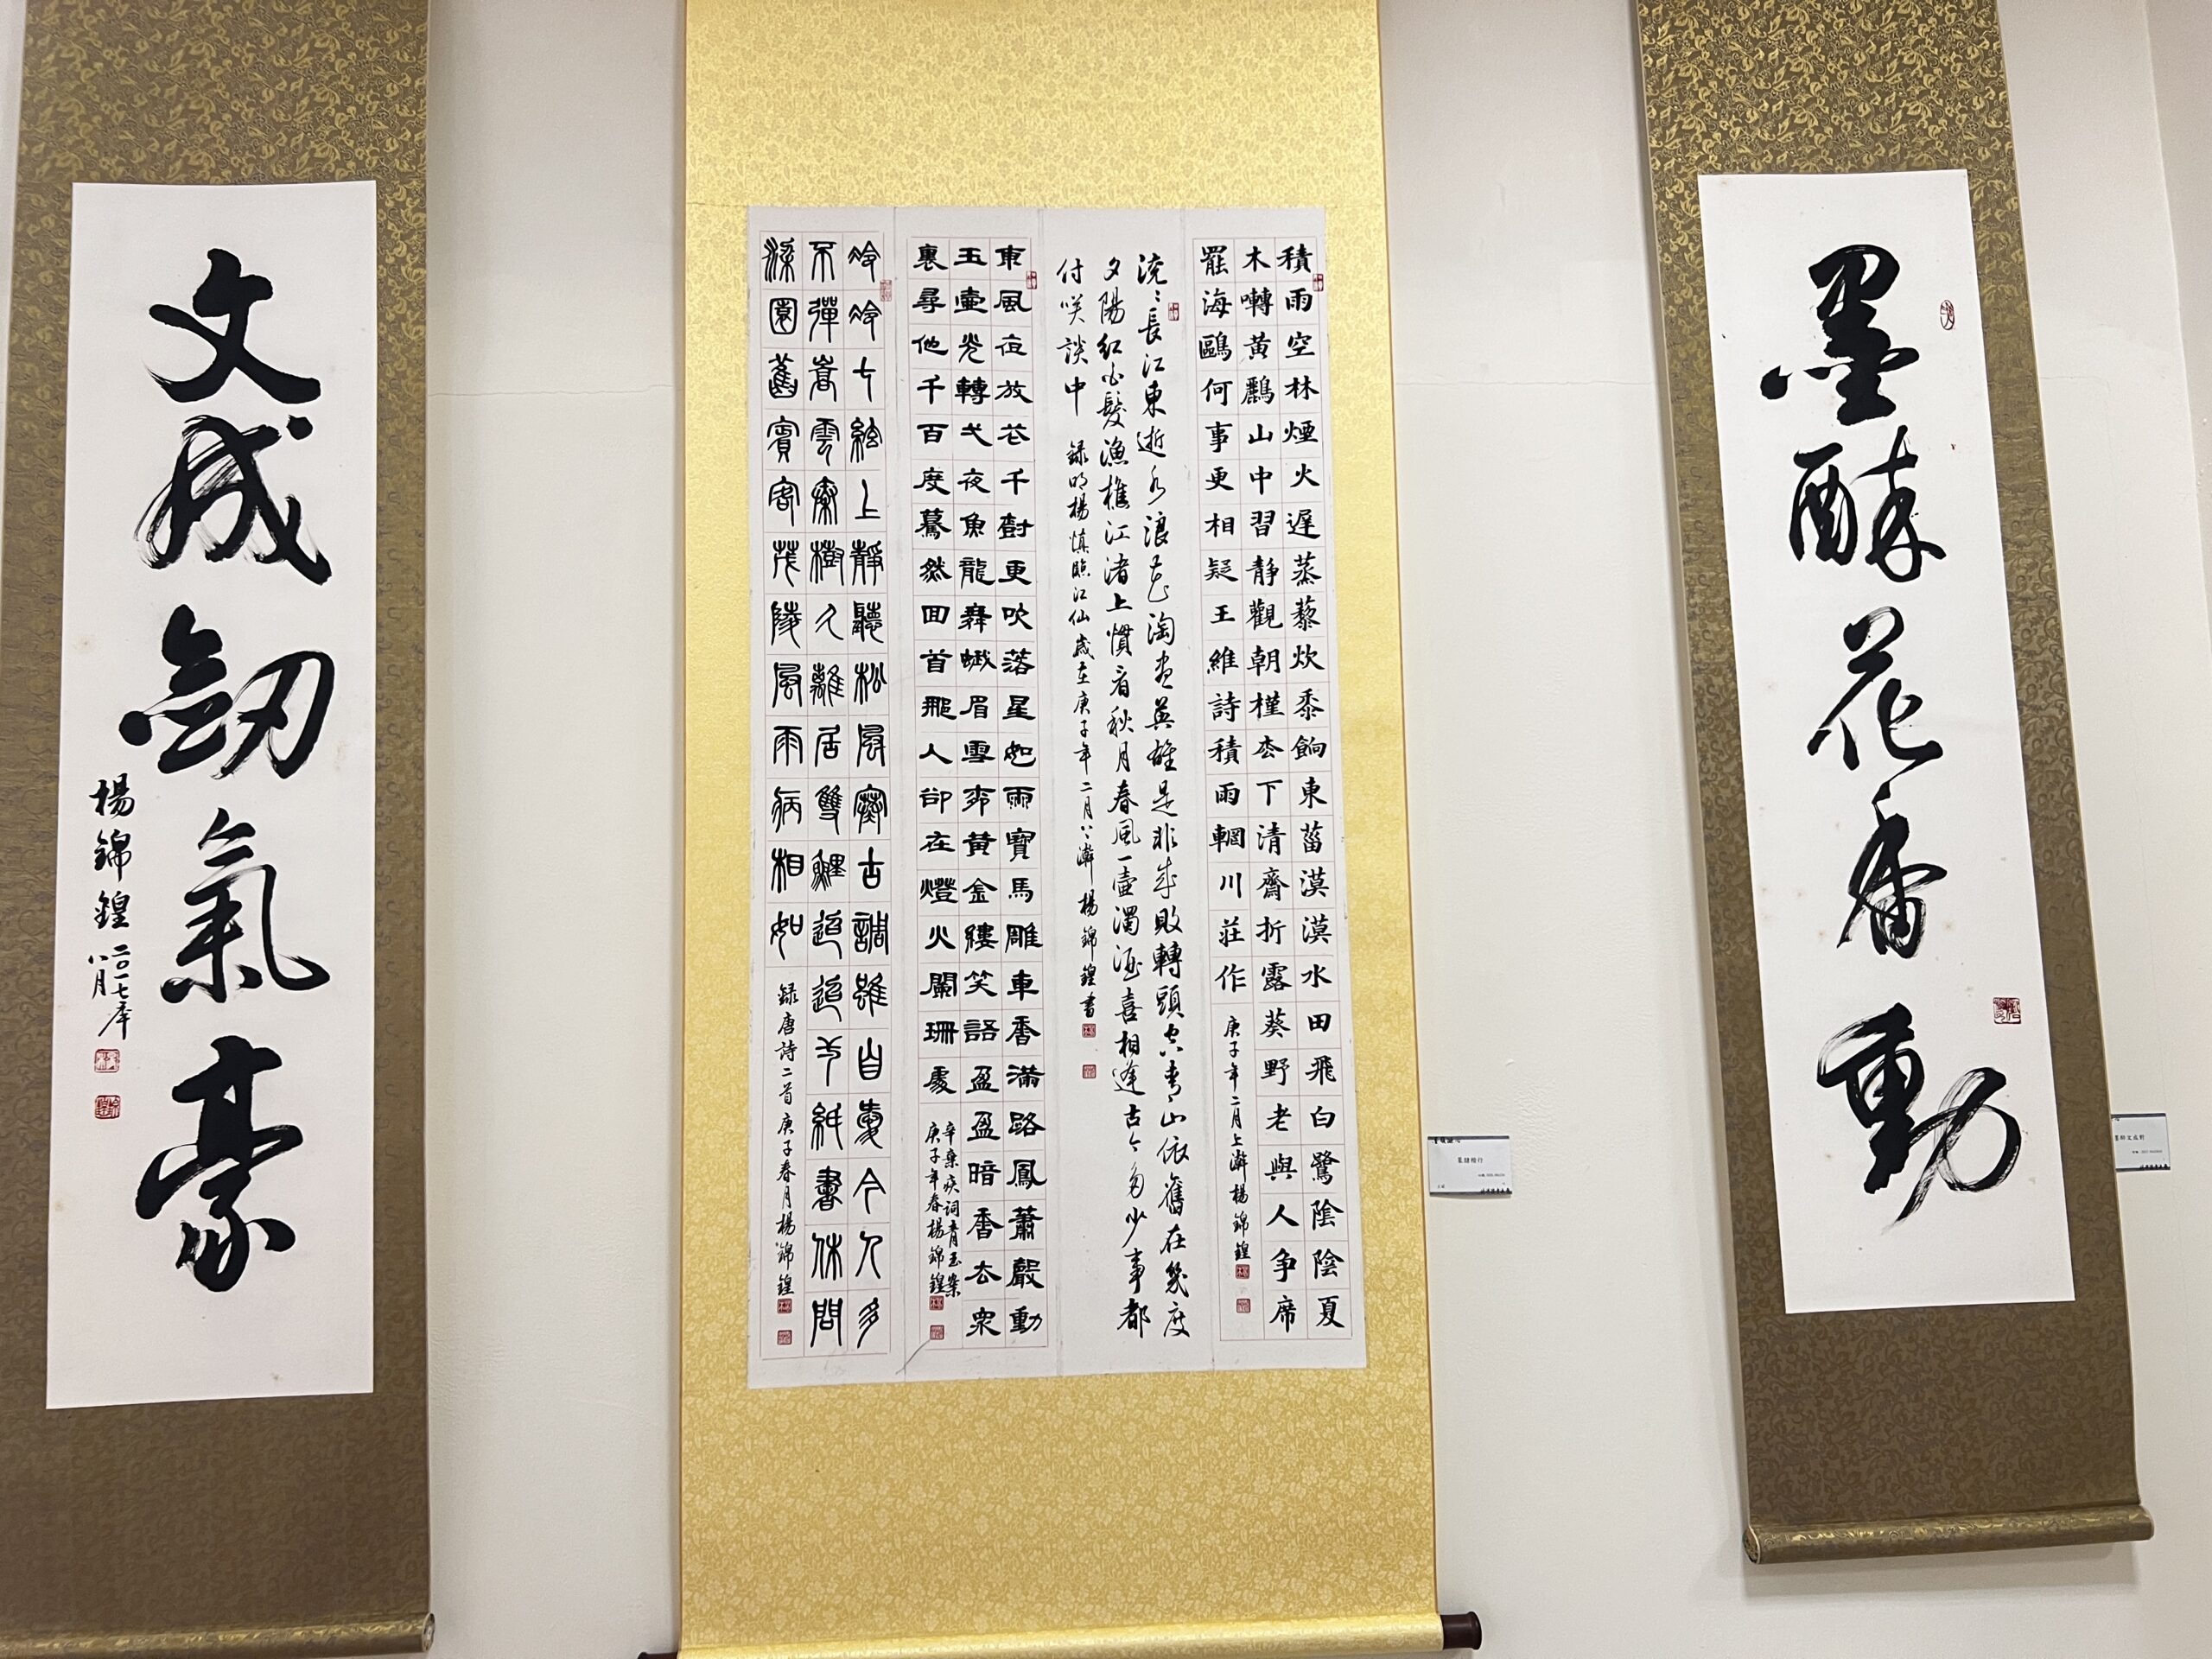 墨醉花香動
積雨空林煙火遲蒸藜炊黍餉東菑漠漠水田飛白鷺陰陰夏
木囀黃鸝山中習靜觀朝槿枩下清齋折露葵野老與人争席
罷海鷗何事更相疑王維詩積雨輞川莊作
庚子年二月上澣楊錦鍠
滾滾長江東逝水浪花淘盡英雄是非成敗轉頭空青山依舊在幾度
夕陽紅白髮漁樵江渚上慣看秋月春風一壺濁酒喜相逢古今多少事都
付笑談中 録明楊慎臨江仙歲在庚子年二月上澣楊錦鍠書
東風夜放花千樹更吹落星如雨寶馬雕車香滿路鳳蕭聲動
玉壺光轉弌夜魚龍舞蛾眉雪柳黃金縷笑語盈盈暗香去衆
裏尋他千百度驀然回首那人卻在燈火闌珊處
辛棄疾詞青玉案
庚子年春楊錦鍠
泠泠七絃上靜聽松風寒古調雖自愛今人多
不彈嵩雲秦樹久離居雙鯉迢迢一紙書休問
梁園舊賓客茂陵風雨病相如
録唐詩二首庚子春月楊錦鍠
文成劒氣豪
楊錦鍠二〇一七年
八月
篆隸楷行